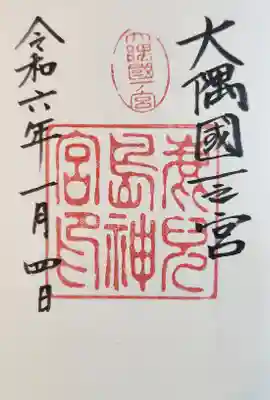 大隅國一之宮
大隅國一宮
鹿兒
島神
宮印
令和六年一月四日